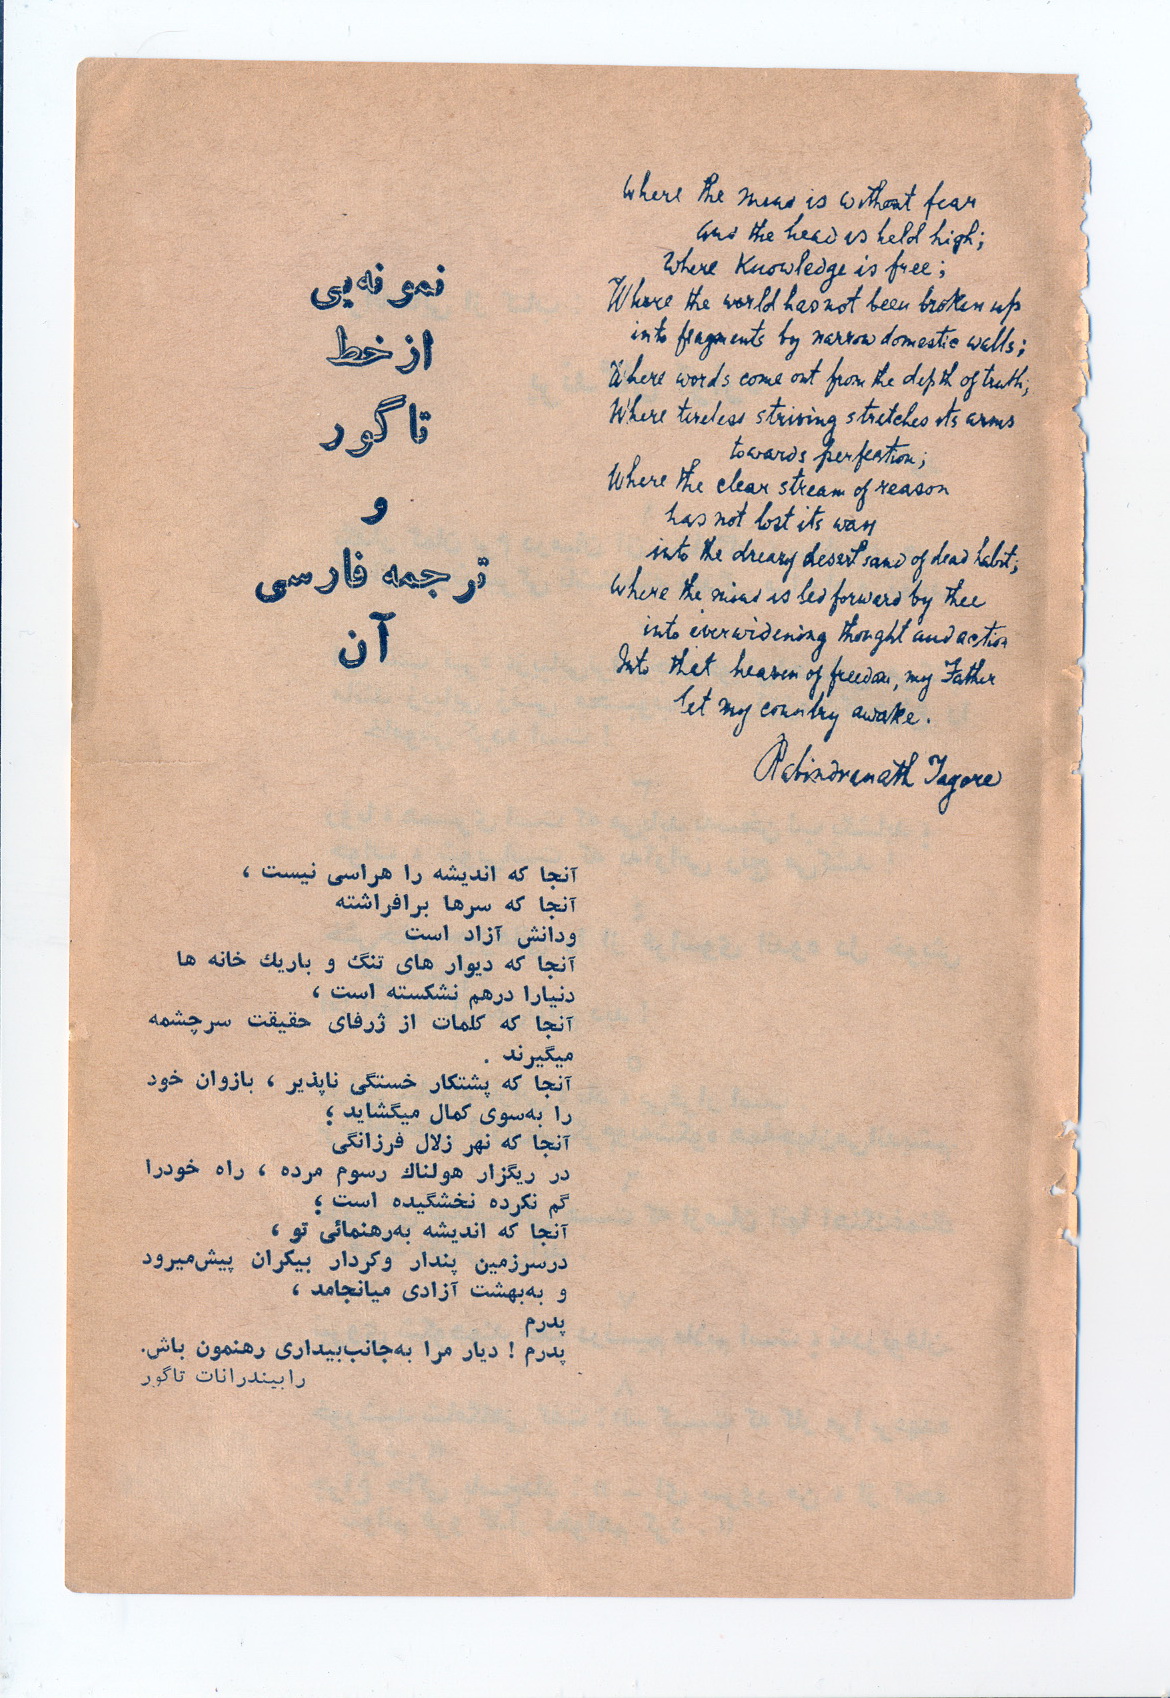 نمونه‌یی
از خط
تاگور
و
ترجمه فارسی
آن
Where the mind is without fear
and the head is held high;
Where knowledge is free;
Where the world has not been broken up
into fragments by narrow domestic walls;
Where words come out from the depth of truth;
Where tireless striving stretches its arms
towards perfection;
Where the clear stream of reason
has not lost its way
into the dreary desert sand of dead habit;
Where the mind is led forward by thee
into everwidening thought and action
Into that heaven of freedom, my Father
let my country awake.
Rabindranath Tagore
آنجا که اندیشه را هراسی نیست ،
آنجا که سرها برافراشته
ودانش آزاد است
آنجا که دیوار های تنگ و باریك خانه ها
دنیارا درهم نشکسته است ،
آنجا که کلمات از ژرفای حقیقت سرچشمه
میگیرند .
آنجا که پشتکار خستگی ناپذیر ، بازوان خود
را به‌سوی کمال میگشاید ؛
آنجا که نهر زلال فرزانگی
در ریگزار هولناك رسوم مرده ، راه خودرا
گم نکرده نخشگیده است ؛
آنجا که اندیشه به‌رهنمائی تو ،
درسرزمین پندار وکردار بیکران پیش‌میرود
و به‌بهشت آزادی میانجامد ،
پدرم
پدرم ! دیار مرا به‌جانب‌بیداری رهنمون باش.
رابیندرانات تاگور